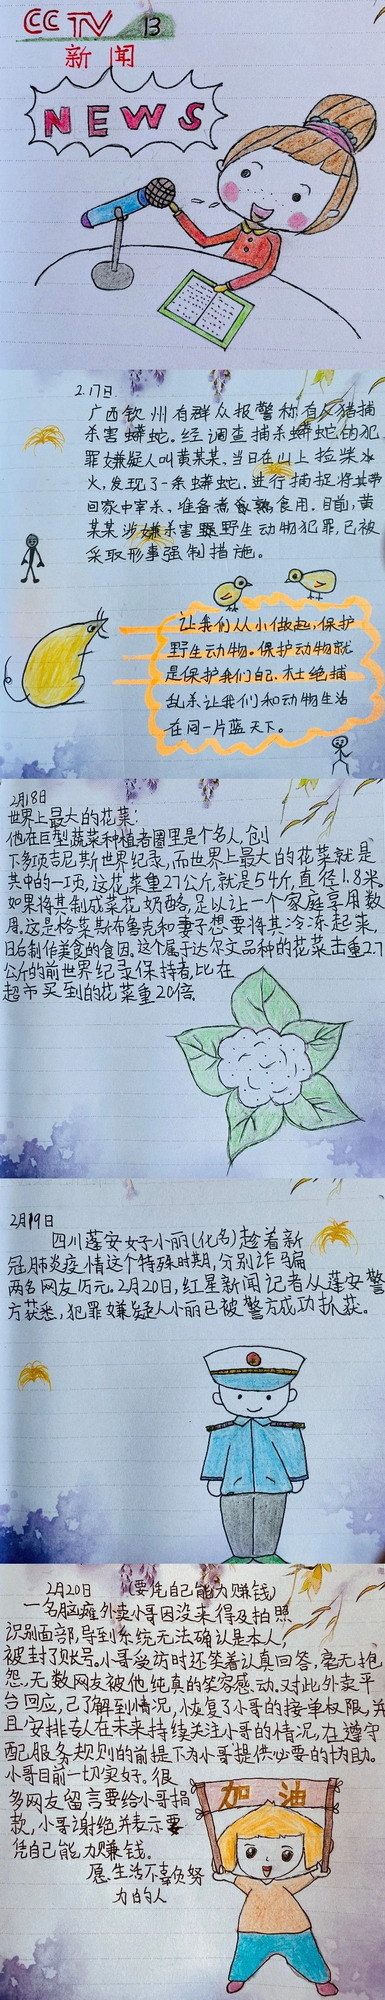 CCTV 13
新闻
NEWS
2.17日.
广西钦州有群众报警称有人猪捕
杀害蟒蛇。经调查捕杀蟒蛇的犯
罪嫌疑人叫黄某某，当日在山上捡柴
火，发现了一条蟒蛇。进行捕捉将其带
回家中宰杀、准备煮食熟食用。目前，黄
某某涉嫌杀害野生动物犯罪，已被
采取形事强制措施。
让我们从小做起，保护
野生动物。保护动物就
是保护我们自己，杜绝捕
乱杀让我们和动物生活
在同一片蓝天下。
2月18日
世界上最大的花菜：
他在巨型蔬菜种植者圈里是个名人，创
下多项吉尼斯世界纪录，而世界上最大的花菜就是
其中的一项，这花菜重27公斤，就是54斤，直径1.8米
如果将其制成菜花奶酪，足以让一个家庭享用数
周。这是格莱斯布鲁克和妻子想要将其冷冻起来，
日后制作美食的食因。这个属于达尔文品种的花菜击重2.7
公斤的前世界纪录保持者，比在
超市买到的花菜重20倍.
2月19日
四川蓬安女子小丽(化名)趁着新
冠肺炎疫情这个特殊时期，分别诈骗
两名网友万元。2月20日，红星新闻记者从蓬安警
方获悉，犯罪嫌疑人小丽已被警方成功抓获。
2月20日 (要凭自己能力赚钱)
一名脑瘫外卖小哥因没来得及拍照
识别面部，导到系统无法确认是本人，
被封了账号。小哥受访时还笑着认真回答，毫无抱
怨，无数网友被他纯真的笑容感动。对此外卖平
台回应，已了解到情况，恢复了小哥的接单权限，并
且安排专人在未来持续关注小哥的情况，在遵守
配服务规则的前提下为小哥提供必要的协助。
小哥目前一切安好。很
多网友留言要给小哥捐
款，小哥谢绝并表示要
凭自己能力赚钱。
愿生活不辜负努
力的人
加油